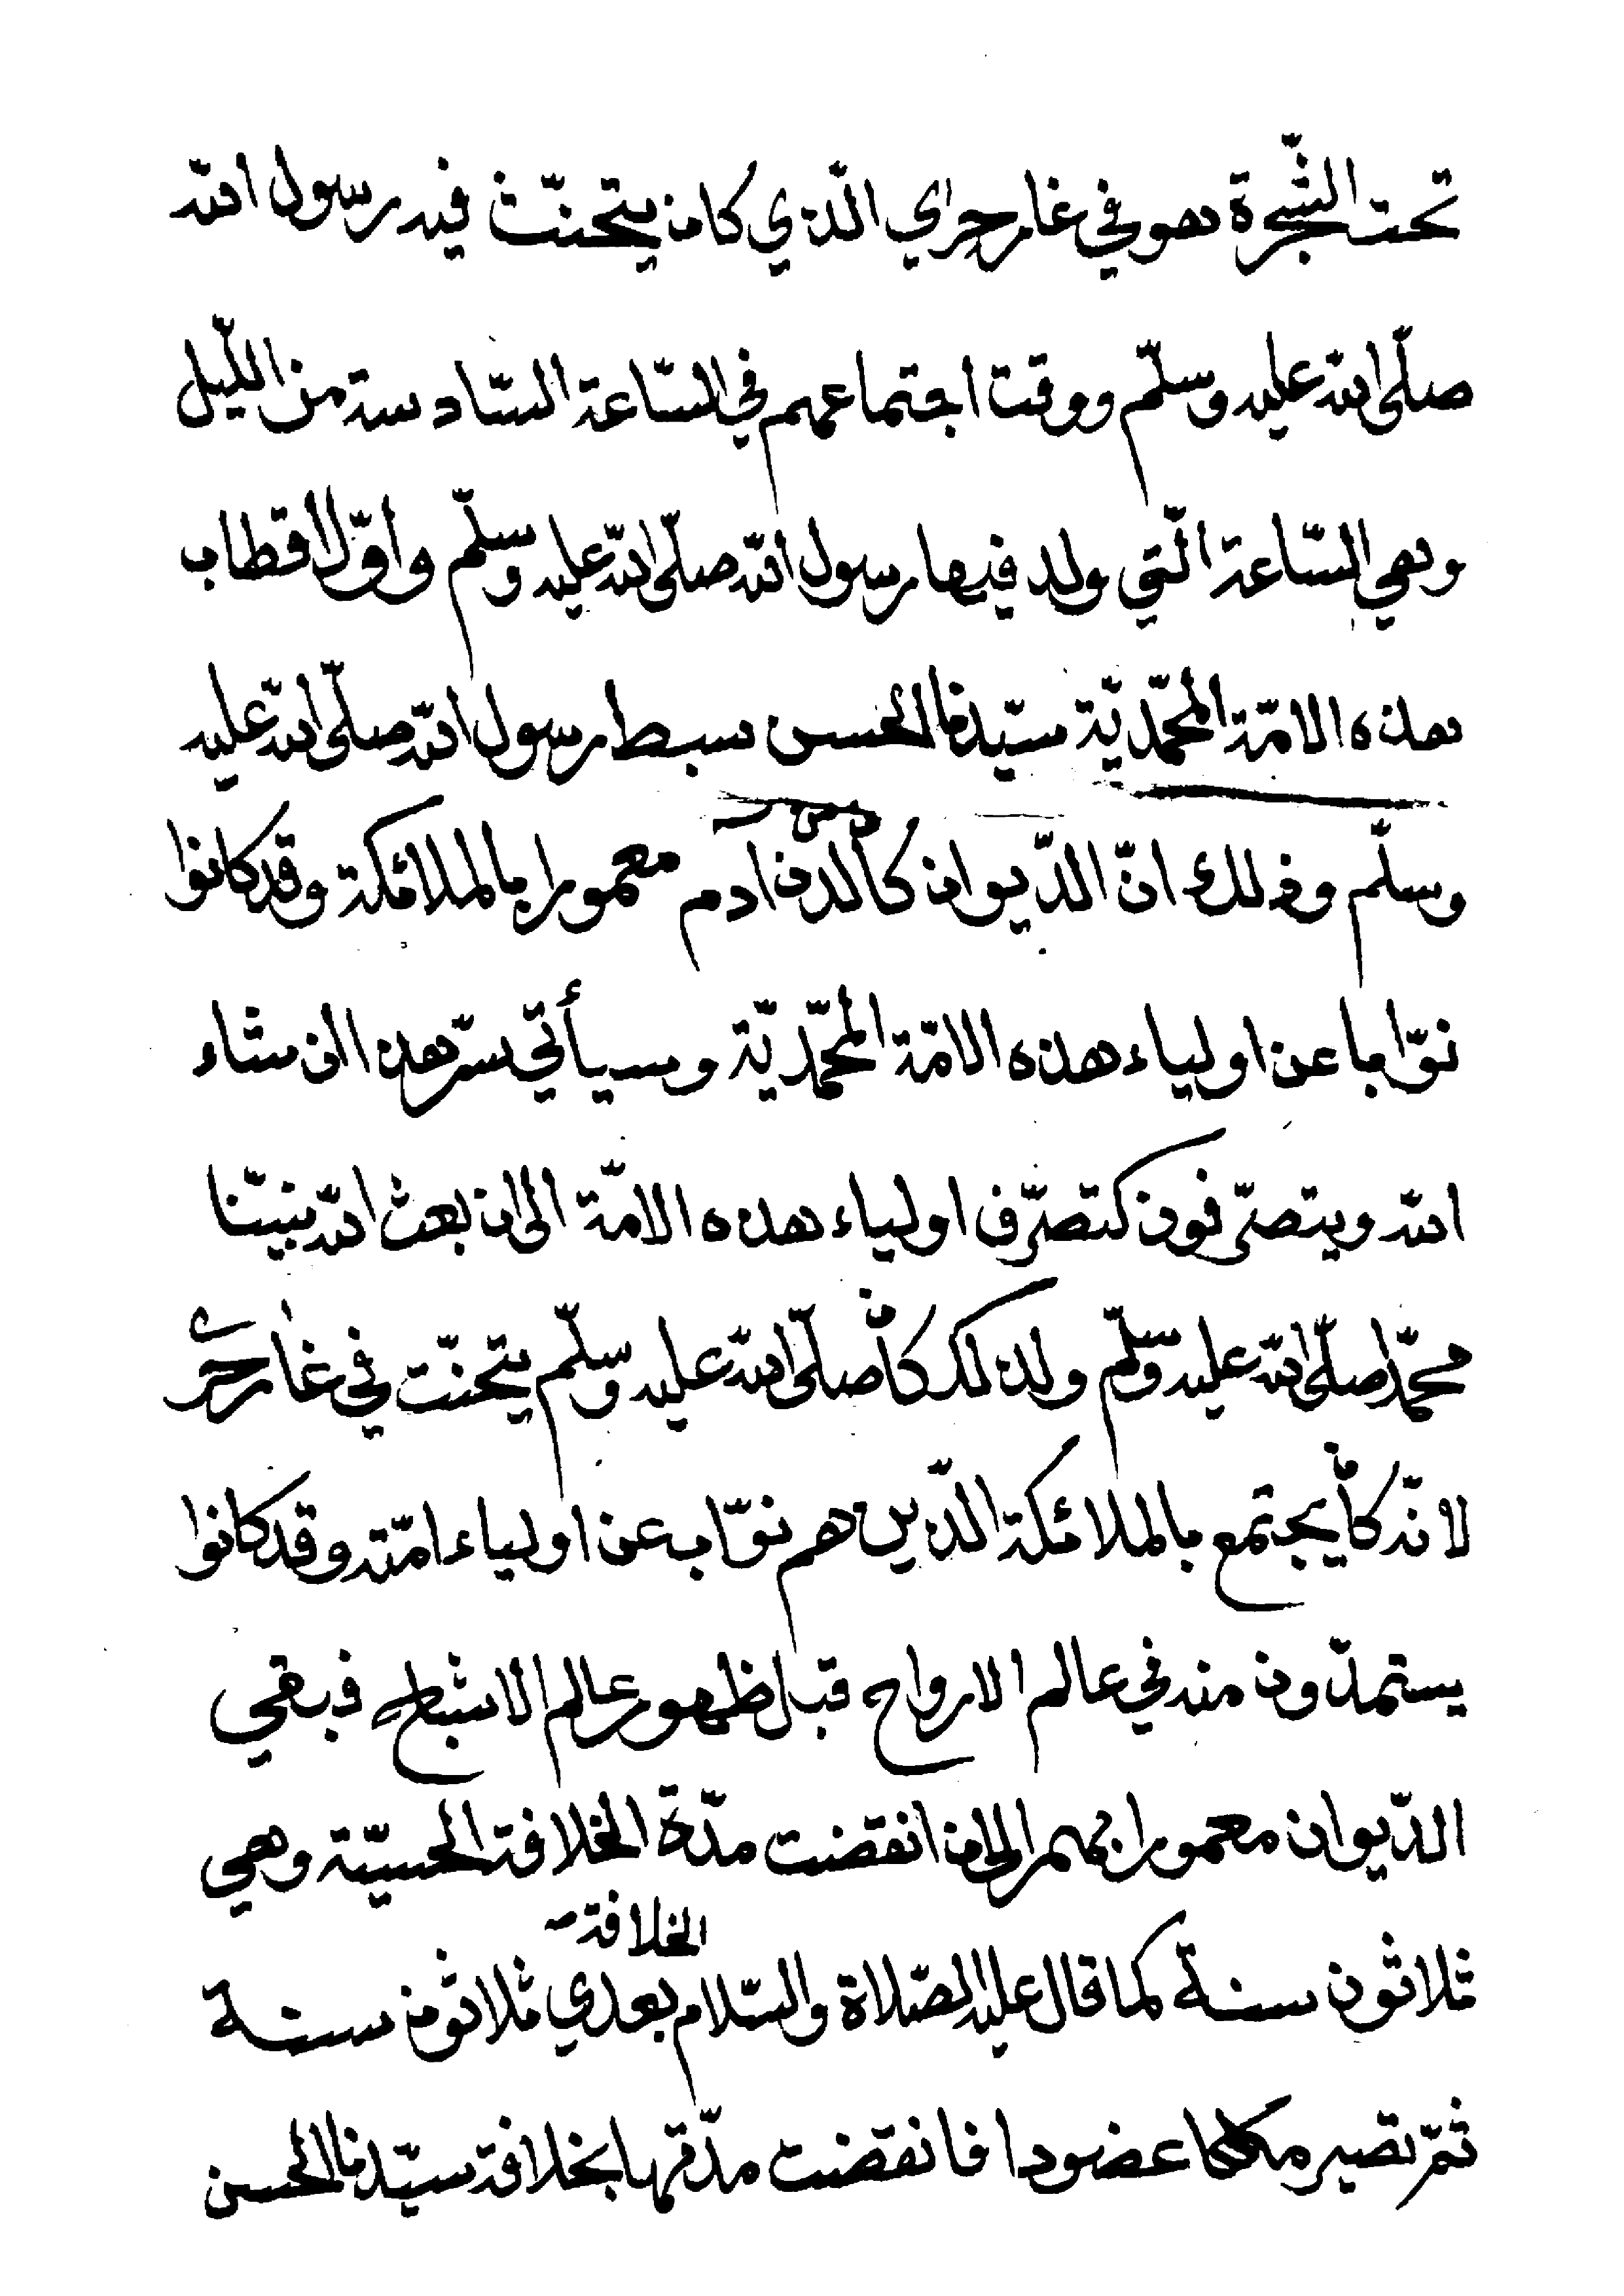 تحت الشّجرة وهو في غار حراي الّذي كان يتحنّث فيه رسول الله
صلّى الله عليه وسلّم ووقت اجتماعهم في السّاعة السّادسة من اللّيل
وهي السّاعة الّتي ولد فيها رسول الله صلّى الله عليه وسلّم واوّل الاقطاب
هذه الامّة المحمّديّة سيّدنا الحسن سبط رسول الله صلّى الله عليه
وسلّم وذلك انّ الدّيوان كان لدن ادم معمورا بالملائكة وقد كانوا
نوّابا عن اولياء هذه الامّة المحمّديّة وسيأتي سرّ هذا ان شاء
الله ويتصرّفون كتصرّف اولياء هذه الامّة الى ان بعث الله نبيّنا
محمّدا صلّى الله عليه وسلّم ولذلك كان صلّى الله عليه وسلّم يتحنّت في غار حرى
لانّه كان يجتمع بالملائكة الّذين هم نوّاب عن اولياء امّته وقد كانوا
يستمدّون منه في عالم الارواح قبل ظهور عالم الاشباح فبقي
الدّيوان معمورا بهم الى ان انقضت مدّة الخلافة الحسيّة وهي
ثلاثون سنة كما قال عليه الصّلاة والسّلام الخلافة بعدي ثلاثون سنة
ثمّ تصير ملكا عضودا فانقضت مدّتها بخلافة سيّدنا الحسن